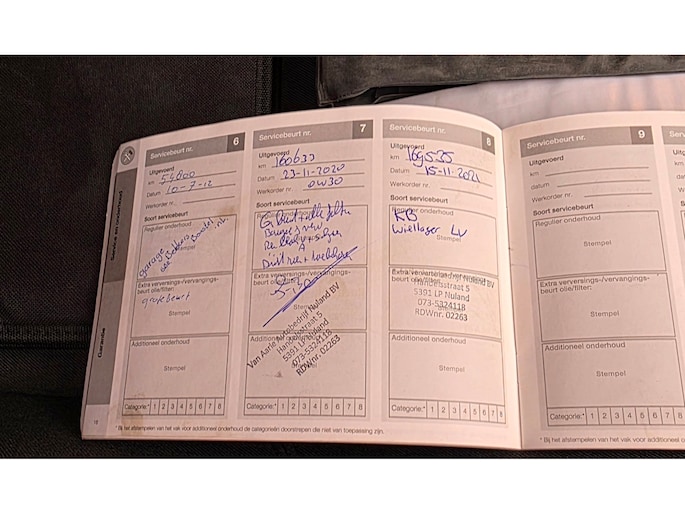 Service en onderhoud
Garantie
Servicebeurt nr. 6
Uitgevoerd
km 54800
Datum 10-7-12
Werkorder nr.
Soort servicebeurt
Regulier onderhoud
Garage
Stempel
Extra verversings-/vervangings-
beurt olie/filter:
grote beurt
Stempel
Additioneel onderhoud
Stempel
Categorie:* 1 2 3 4 5 6 7 8
Servicebeurt nr. 7
Uitgevoerd
km 160633
Datum 23-11-2020
Werkorder nr. 0W30
Soort servicebeurt
Regulier onderhoud
G Beurt + alle filters
Bougies new
Distri
Extra verversings-/vervangings-
beurt olie/filter:
Stempel
Van Aarle Autobedrijf Nuland BV
Handelsstraat 5
5391 LP Nuland
073-5324118
RDWnr. 02263
Additioneel onderhoud
Stempel
Categorie:* 1 2 3 4 5 6 7 8
Servicebeurt nr. 8
Uitgevoerd
km 169535
Datum 15-11-2021
Werkorder nr.
Soort servicebeurt
Regulier onderhoud
KB
Wiellager LV
Stempel
Extra verversings-/vervangings-
beurt olie/filter:
Nuland BV
Handelsstraat 5
5391 LP Nuland
073-5324118
RDWnr. 02263
Additioneel onderhoud
Stempel
Categorie:* 1 2 3 4 5 6 7 8
* Bij het afstempelen van het vak voor additioneel onderhoud de categorieën doorstrepen die niet van toepassing zijn.
Servicebeurt nr. 9
Uitgevoerd
km
datum
Werkorder nr.
Soort servicebeurt
Regulier onderhoud
Stempel
Extra verversings-/vervangings-
beurt olie/filter:
Stempel
Additioneel onderhoud
Stempel
Categorie:* 1 2 3 4 5 6 7 8
* Bij het afstempelen van het vak voor additioneel o